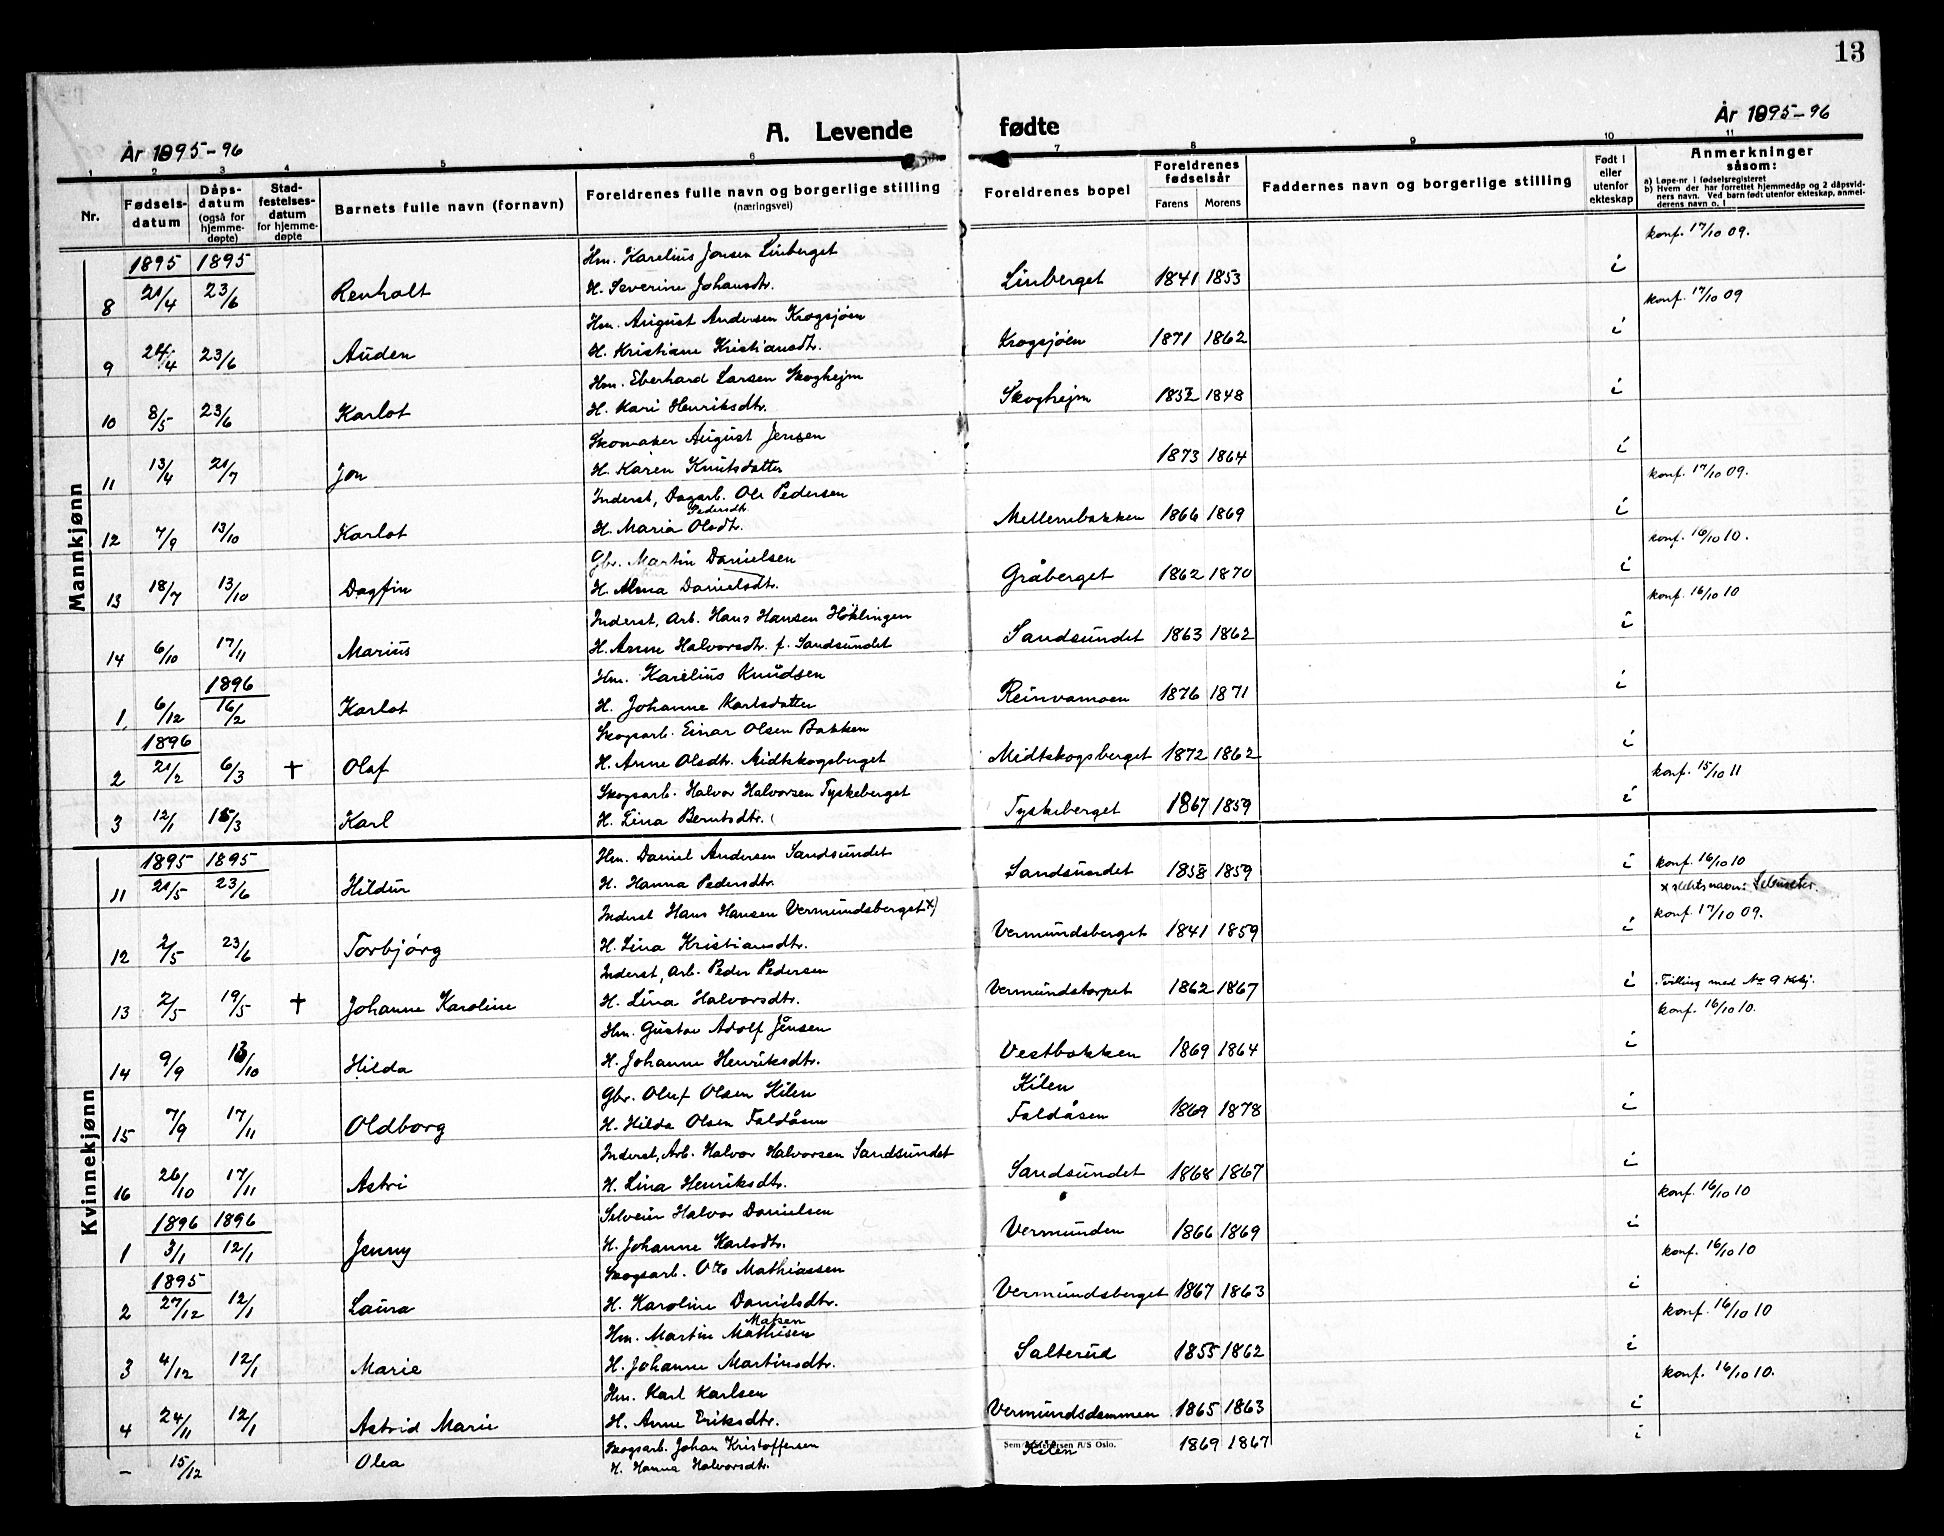 13
A. Levende fødte
År 1895-96
År 1895-96
1 2 3 4 5 6 7 8 9 10 11
Nr.
Fødsels-datum
Dåps-datum (også for hjemme-døpte)
Stad-festelses-datum for hjemme-døpte
Barnets fulle navn (fornavn)
Foreldrenes fulle navn og borgerlige stilling (næringsvei)
Foreldrenes bopel
Foreldrenes fødselsår
Farens Morens
Faddernes navn og borgerlige stilling
Født i eller utenfor ekteskap
Anmerkninger såsom:
a) Løpe-nr i fødselsregistret
b) Hvem der har forrettet hjemmedåp og 2 dåpsvidners navn. Ved barn født utenfor ekteskap, anmelderens navn o. l
Mannkjønn
1895 1895
Hm. Karelius Jonsen Linberget konf. 17/10 09.
8 21/4 23/6 Renholt H. Severine Johansdtr. Linberget 1841 1853 i
Hm. August Andersen Krogsjøen konf. 17/10 09
9 24/4 23/6 Auden H. Kristiane Kristiansdtr. Krogsjöen 1871 1862 i
Hm. Eberhard Larsen Skoghejm
10 8/5 23/6 Karlot H. Kari Henriksdtr. Skoghejm 1852 1848 i
Skomaker August Jensen
11 13/4 21/7 Jon H. Karen Knutsdatter 1873 1864 i
Inderst, Dagarb. Ole Pedersen konf. 17/10 09.
Pedersdtr
12 7/9 13/10 Karlot H. Maria Olsdtr. Mellembakken 1866 1869 i
Gbr. Martin Danielsen konf. 16/10 10.
13 18/7 13/10 Dagfin H. Alma Danielsdtr. Gråberget 1862 1870 i
Inderst, Arb. Hans Hansen Höklingen konf. 16/10 10
14 6/10 17/11 Marius H. Anne Halvorsdtr. f. Sandsundet Sandsundet 1863 1862 i
1896
Hm. Karelius Knudsen
1 6/12 16/2 Karlot H. Johanne Karlsdatter Reinvamoen 1876 1871 i
1896
Skogsarb. Einar Olsen Bakken
2 21/2 6/3 † Olaf H. Anne Olsdtr. Midtskogsberget Midtskogsberget 1872 1862 i
Skogsarb. Halvor Halvorsen Tyskeberget konf. 15/10 11
3 12/1 15/3 Karl H. Lina Berntsdtr. Tyskeberget 1867 1859 i
Kvinnekjønn
1895 1895
Hm. Daniel Andersen Sandsundet konf. 16/10 10
11 21/5 23/6 Hildur H. Hanna Pedersdtr. Sandsundet 1858 1859 i
x slektsnavn:
Inderst Hans Hansen Vermundsberget x) konf. 17/10 09.
12 2/5 23/6 Torbjörg H. Lina Kristiansdtr. Vermundsberget 1841 1859 i
Inderst, Arb. Peder Pedersen Tvilling med No 9 Kvkj.
13 2/5 19/5 † Johanne Karoline H. Lina Halvorsdtr. Vermundstorpet 1862 1867 i
Hm. Gustav Adolf Jensen konf. 16/10 10.
14 9/9 13/10 Hilda H. Johanne Henriksdtr. Vestbakken 1869 1864 i
Gbr. Oluf Olsen Kilen Kilen
15 7/9 17/11 Oldborg H. Hilda Olsen Faldåsen Faldåsen 1869 1878 i
Inderst, Arb. Halvor Halvorsen Sandsundet
16 26/10 17/11 Astri H. Lina Henriksdtr. Sandsundet 1868 1867 i
1896 1896
Selveier Halvor Danielsen konf. 16/10 10
1 3/1 12/1 Jenny H. Johanne Karlsdtr. Vermunden 1866 1869 i
1895
Skogsarb. Otto Mathiassen konf. 16/10 10
2 27/12 12/1 Laura H. Karoline Danielsdtr. Vermundsberget 1867 1863 i
Matsen
Hm. Martin Mathisen konf. 16/10 10
3 4/12 12/1 Marie H. Johanne Martinsdtr. Salterud 1855 1862 i
Hm. Karl Karlsen konf. 16/10 10.
4 24/11 12/1 Astrid Marie H. Anne Eriksdtr. Vermundsdammen 1865 1863 i
Skogsarb. Johan Kristoffersen
– 15/12 Olea H. Hanna Halvorsdtr. Kilen 1869 1867 i
A/S Oslo.